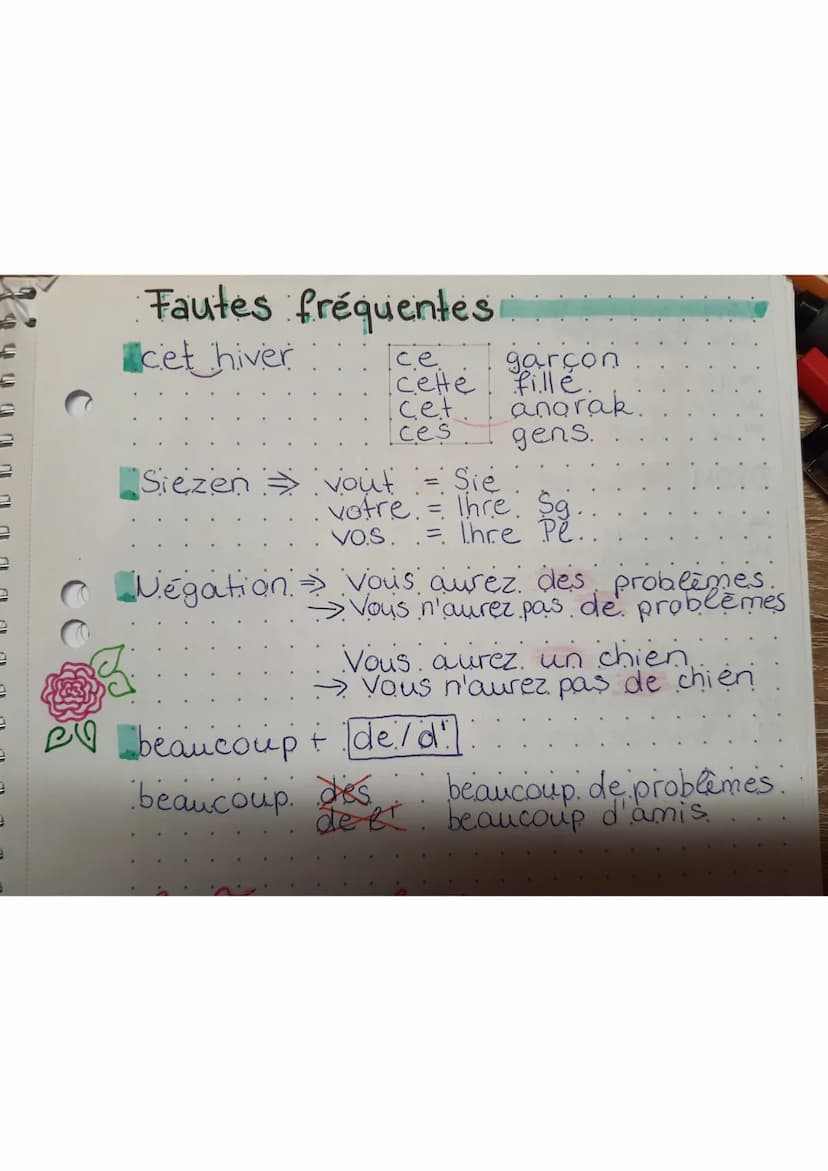 Fautes fréquentes
cet hiver
ce garçon
cette fille
cet anorak
ces gens
Siezen ⇒ vout = Sie
votre = Ihre Sg.
vos = Ihre Pl.
Négation ⇒ Vous aurez des problèmes.
→ Vous n'aurez pas de problèmes
Vous aurez un chien
→ Vous n'aurez pas de chien
beaucoup + de/d'
beaucoup des beaucoup de problèmes
de l' beaucoup d'amis